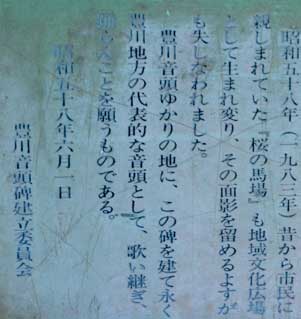 昭和五十八年（一九八三年）昔から市民に
親しまれていた『桜の馬場』も地域文化広場
として生まれ変り、その面影を留めるよすが
も失しなわれました。
豊川音頭ゆかりの地に、この碑を建て永く
豊川地方の代表的な音頭として、歌い継ぎ、
踊らんことを願うものである。
昭和五十八年六月一日
豊川音頭碑建立委員会